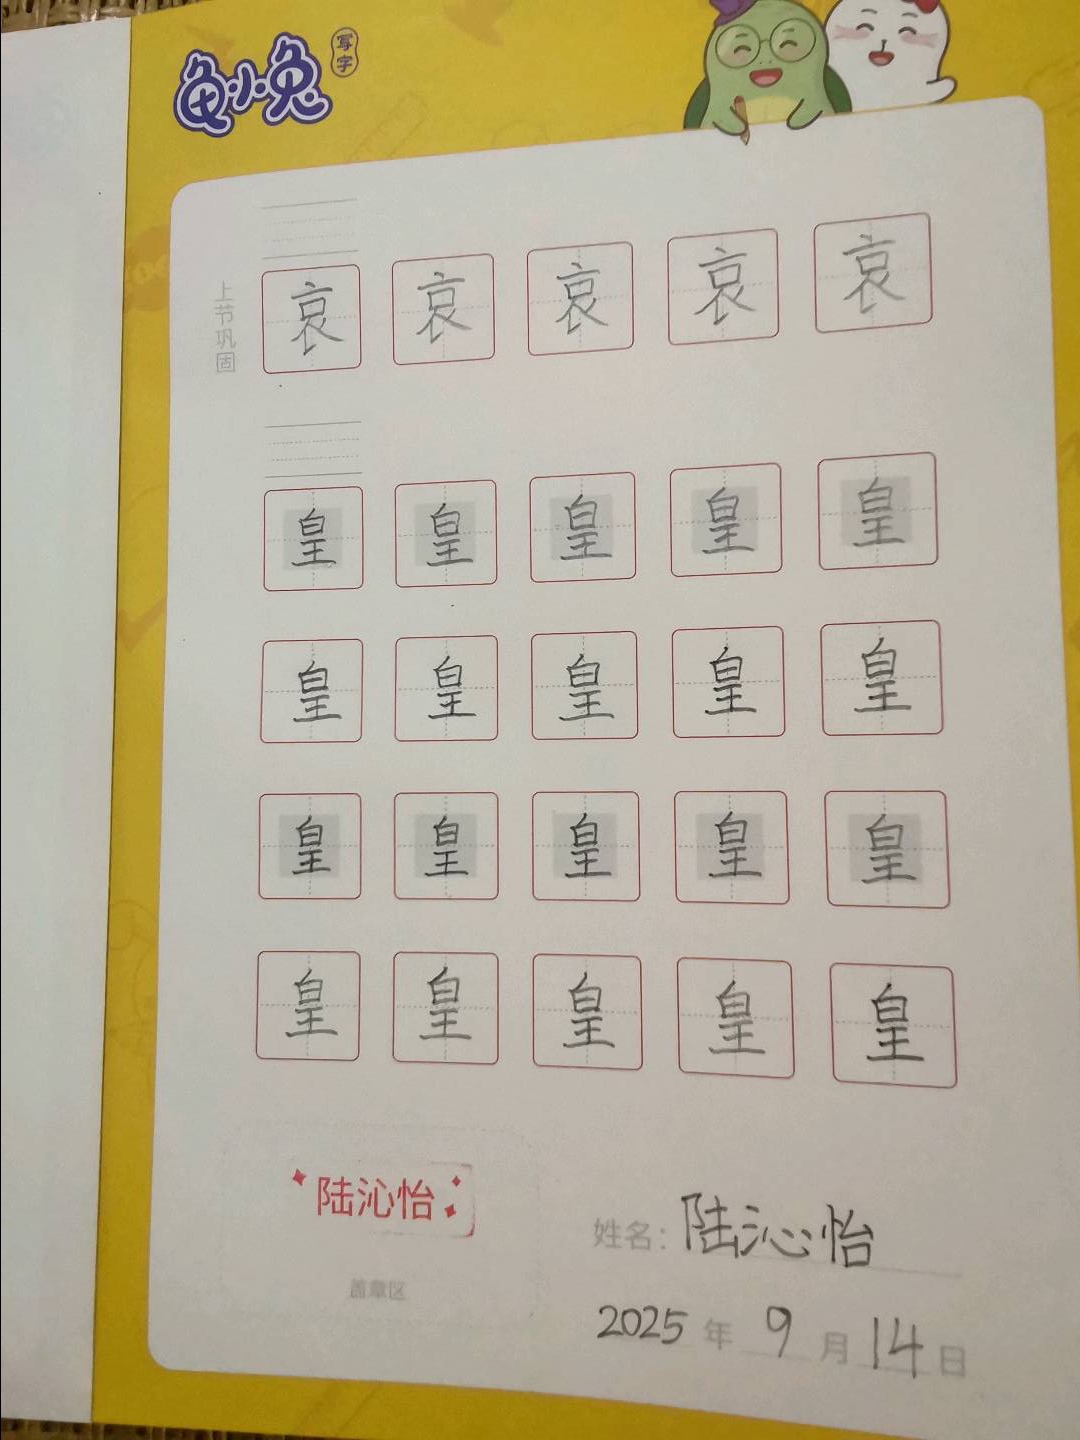 龟小兔
写字
上节巩固
哀 哀 哀 哀 哀
皇 皇 皇 皇 皇
皇 皇 皇 皇 皇
皇 皇 皇 皇 皇
皇 皇 皇 皇 皇
陆沁怡
盖章区
姓名：陆沁怡
2025年9月14日